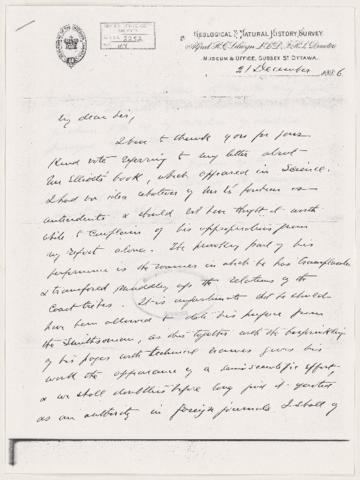 GEOLOGICAL & NATURAL HISTORY SURVEY.
Alfred R. C. Selwyn, L.L.D., F.R.S., Director
MUSEUM & OFFICE, SUSSEX ST OTTAWA.
21 December 1886
My dear Sir,
I have to thank you for your
kind note referring to my letter about
Mr Elliott's book, which appeared in Science.
I had no idea whatever of Mr E's previous
antecedents & should not have thought it worth
while to complain of his appropriations from
my report alone. The part of his
performance is the manner in which he has
& transferred the relations of the
Coast tribes. It is unfortunate that he should
have been allowed to date his preface from
the Smithsonian, as this together with the besprinkling
of his pages with technical names gives his
work the appearance of a semi scientific effort,
& we shall doubtless before long find it quoted
as an authority in foreign journals. I shall if